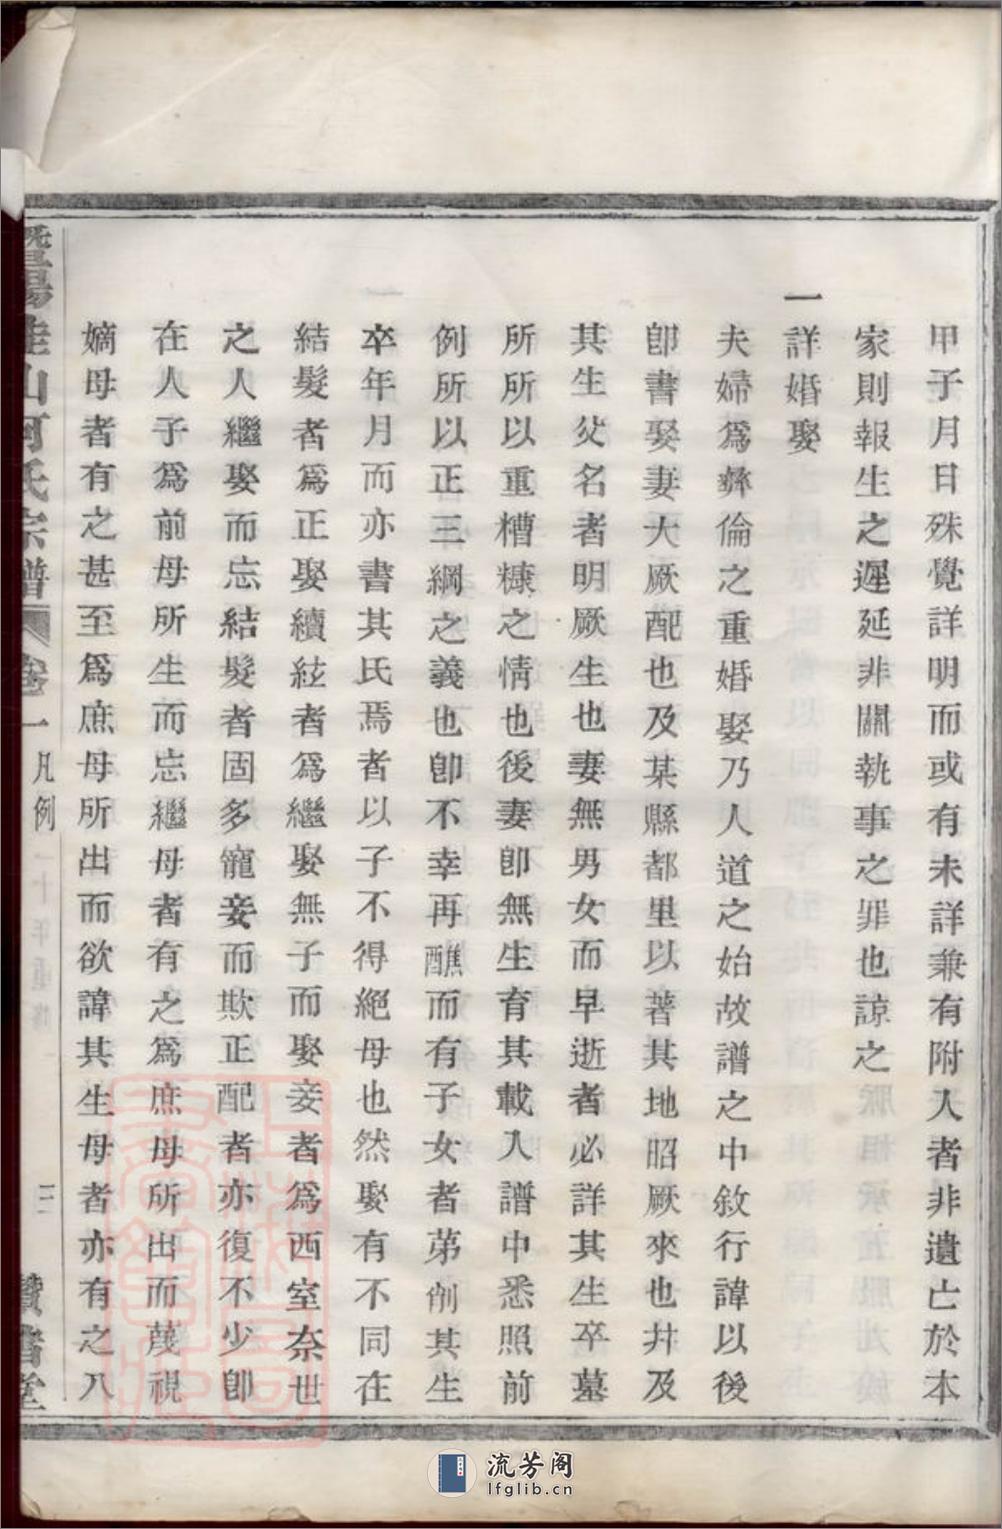 甲子月日殊覺詳明而或有未詳兼有附入者非遺亡於本
家則報生之遲延非關執事之罪也諒之
一詳婚娶
夫婦爲彝倫之重婚娶乃人道之始故譜之中敘行諱以後
卽書娶妻大厥配也及某縣都里以著其地昭厥來也幷及
其生父名者明厥生也妻無男女而早逝者必詳其生卒墓
所所以重糟糠之情也後妻卽無生育其載入譜中悉照前
例所以正三綱之義也卽不幸再醮而有子女者苐削其生
卒年月而亦書其氏焉者以子不得絕母也然娶有不同在
結髮者爲正娶續絃者爲繼娶無子而娶妾者爲西室奈世
之人繼娶而忘結髮者固多寵妾而欺正配者亦復不少卽
在人子爲前母所生而忘繼母者有之爲庶母所出而蔑視
嫡母者有之甚至爲庶母所出而欲諱其生母者亦有之八
暨陽 山何氏宗譜 卷一 凡例 三 書堂
流芳阁
lfglib.cn